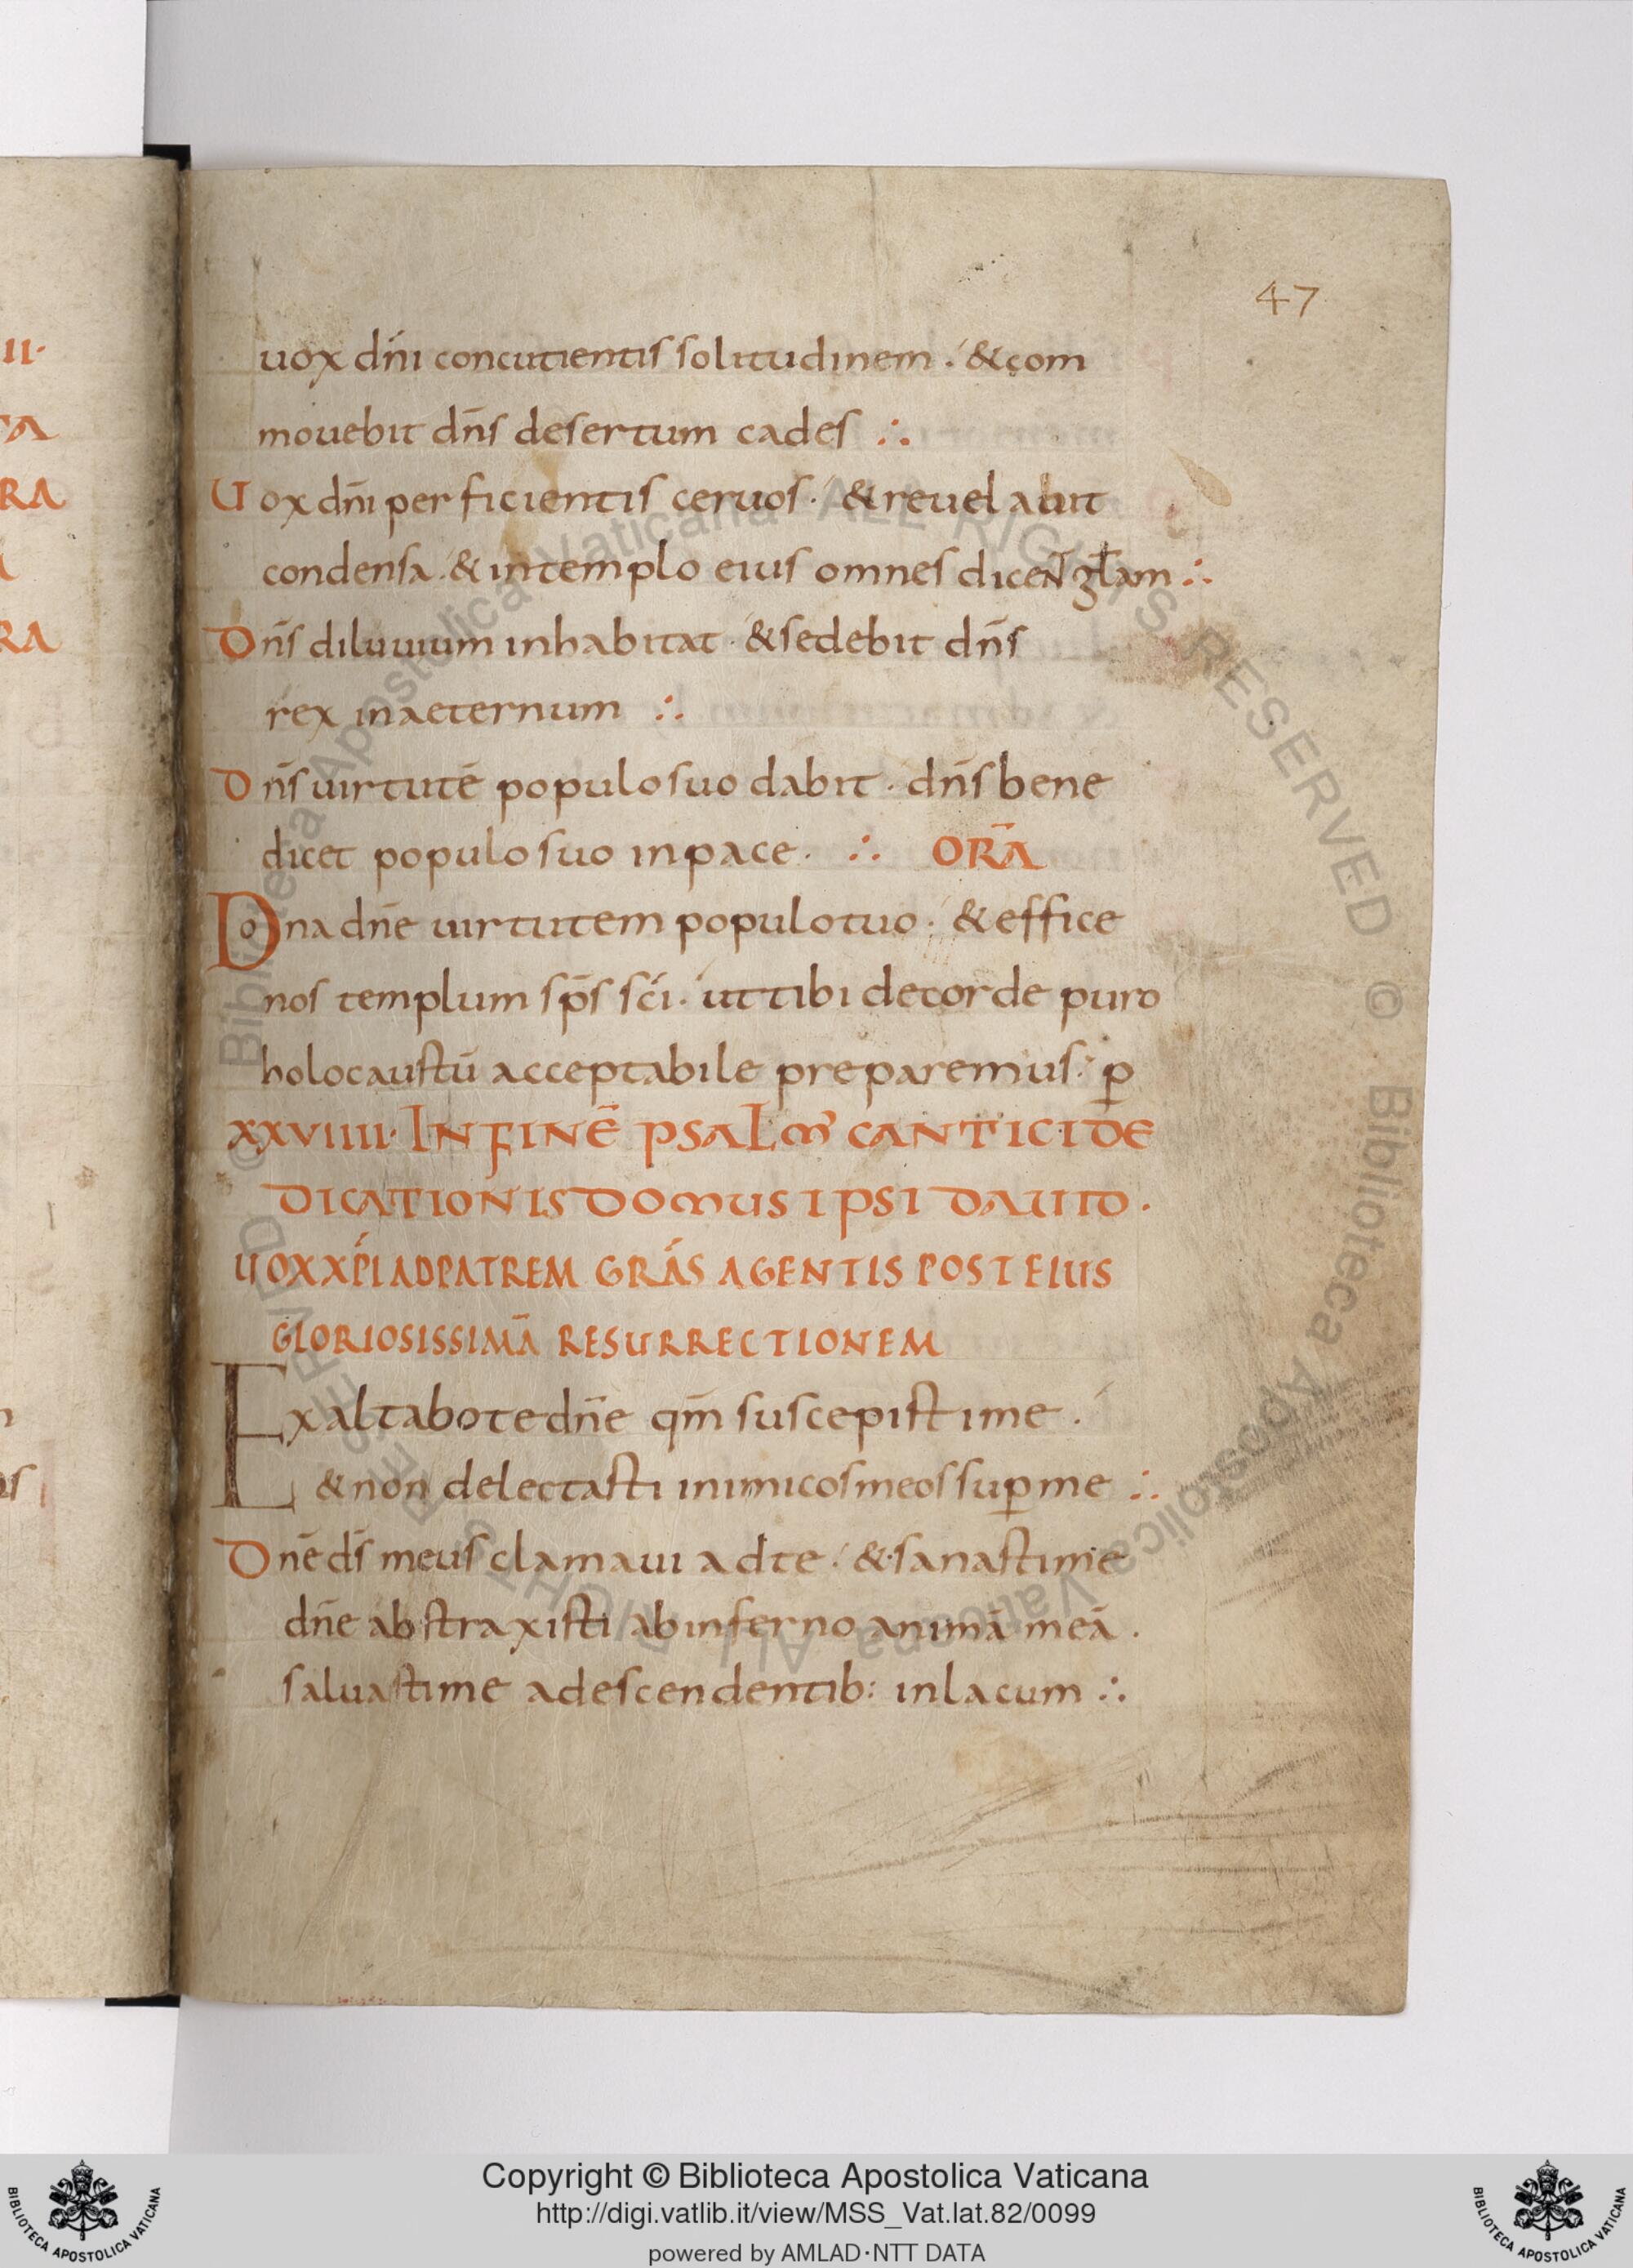 47
uox dn̄i concutientis solitudinem · & com
mouebit dn̄s desertum cades ∴
Uox dn̄i perficientis ceruos · & reuelabit
condensa · & intemplo eius omnes dicent gl̄am ∴
Dn̄s diluuium inhabitat · & sedebit dn̄s
rex inaeternum ∴
Dn̄s uirtutē populo suo dabit · dn̄s bene
dicet populo suo inpace · ∴ ORĀ
Dona dn̄e uirtutem populo tuo · & effice
nos templum sp̄s sc̄i · ut tibi decorde puro
holocaustū acceptabile preparemus · ꝑ
XXVIIII · IN FINĒ PSALM' CANTICI DE
DICATIONIS DOMUS IPSI DAUID ·
UOX XP̄I AD PATREM GRĀS AGENTIS POST EIUS
GLORIOSISSIMĀ RESURRECTIONEM
Exaltabo te dn̄e qm̄ suscepisti me ·
& non delectasti inimicos meos suꝑ me ∴
Dn̄e ds̄ meus clamaui ad te · & sanasti me
dn̄e abstraxisti ab inferno animā meā ·
saluasti me a descendentib: in lacum ∴
II·
TA
RA
RA
© Biblioteca Apostolica Vaticana ALL RIGHTS RESERVED © Biblioteca Apostolica Vaticana ALL RIGHTS RESERVED
BIBLIOTECA APOSTOLICA VATICANA
Copyright © Biblioteca Apostolica Vaticana
http://digi.vatlib.it/view/MSS_Vat.lat.82/0099
powered by AMLAD·NTT DATA
BIBLIOTECA APOSTOLICA VATICANA